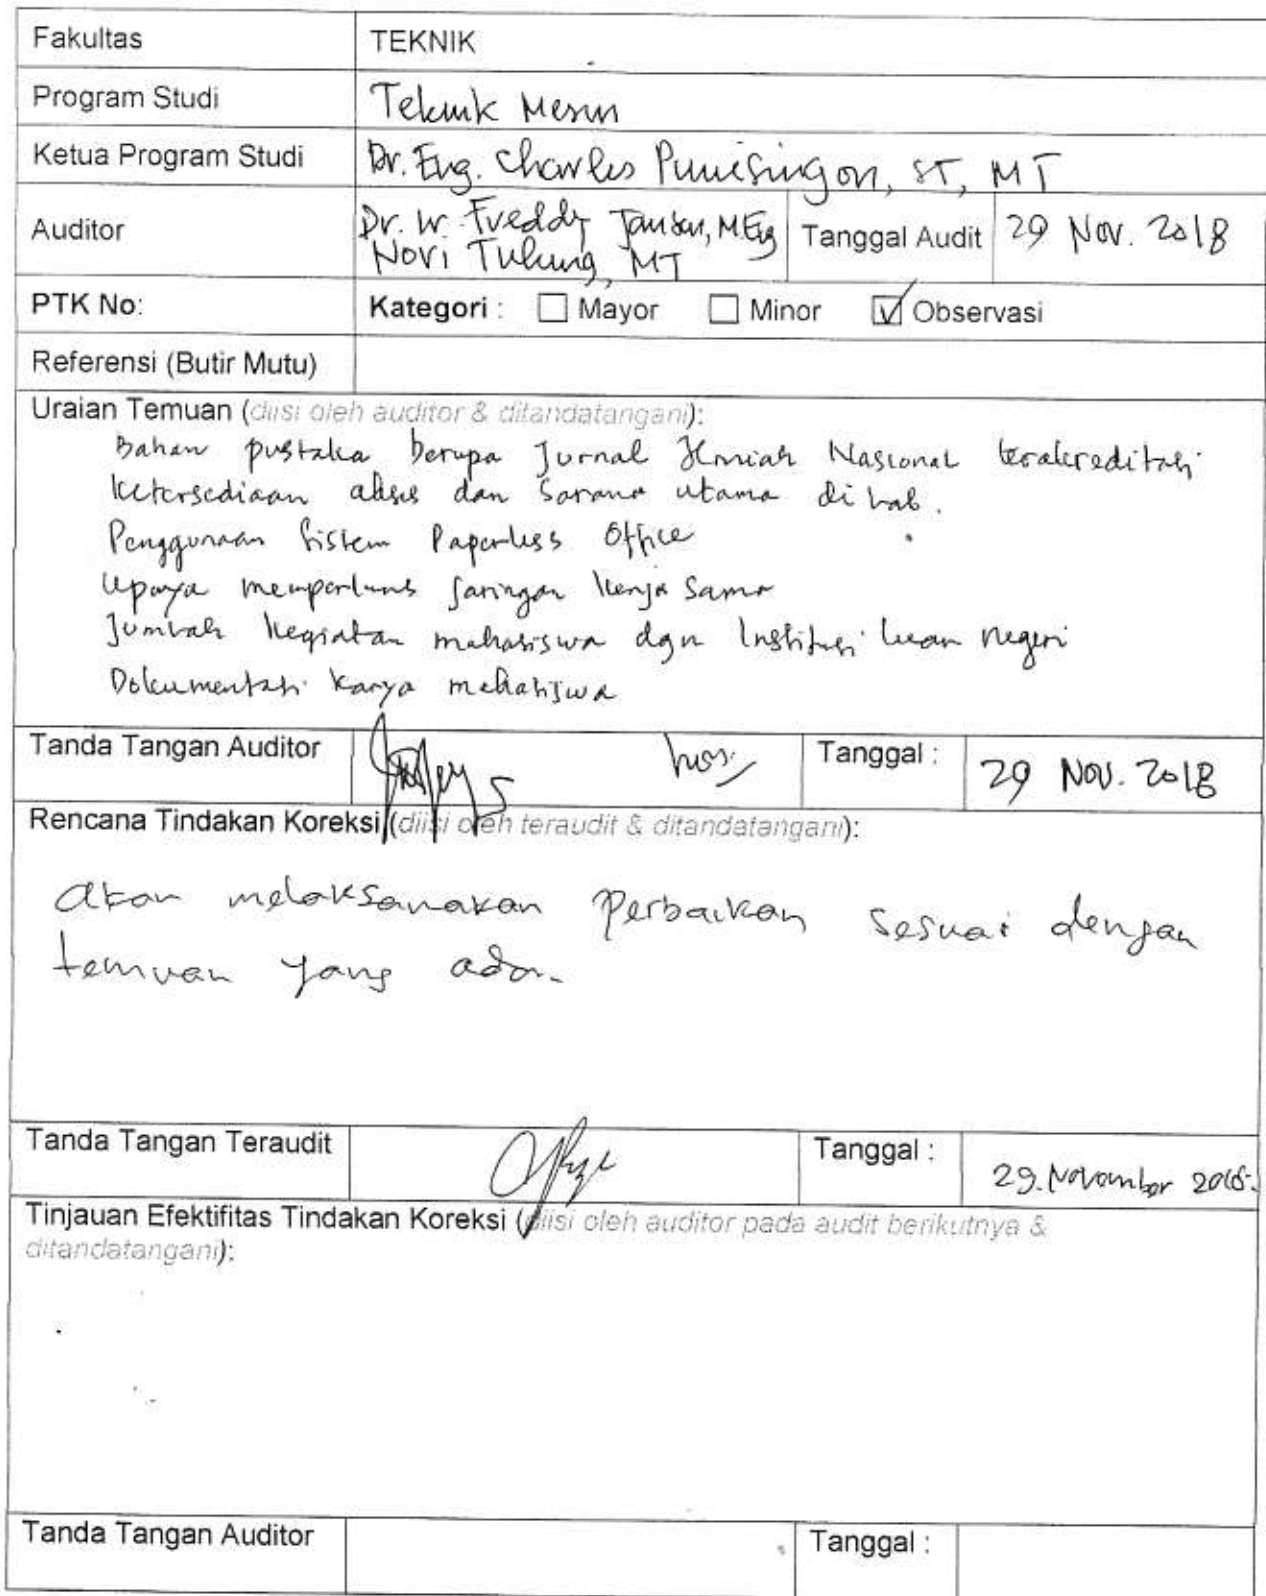 Fakultas TEKNIK
Program Studi Teknik Mesin
Ketua Program Studi Dr. Eng. Charles Punuhsingon, ST, MT
Auditor Dr. Ir. Freddy Jansen, M.Eng
Novi Tulung, MT
Tanggal Audit 29 Nov. 2018
PTK No: Kategori : Mayor Minor Observasi
Referensi (Butir Mutu)
Uraian Temuan (diisi oleh auditor & ditandatangani):
Bahan pustaka berupa Jurnal Ilmiah Nasional terakreditasi
Ketersediaan akses dan Sarana utama di Lab.
Penggunaan Sistem Paperless Office
Upaya memperluas Jaringan Kerja Sama
Jumlah Kegiatan mahasiswa dgn Institusi luar negeri
Dokumentasi Karya mahasiswa
Tanda Tangan Auditor Tanggal : 29 Nov. 2018
Rencana Tindakan Koreksi (diisi oleh teraudit & ditandatangani):
akan melaksanakan Perbaikan Sesuai dengan
temuan yang ada.
Tanda Tangan Teraudit Tanggal : 29. November 2018.
Tinjauan Efektifitas Tindakan Koreksi (diisi oleh auditor pada audit berikutnya &
ditandatangani):
Tanda Tangan Auditor Tanggal :